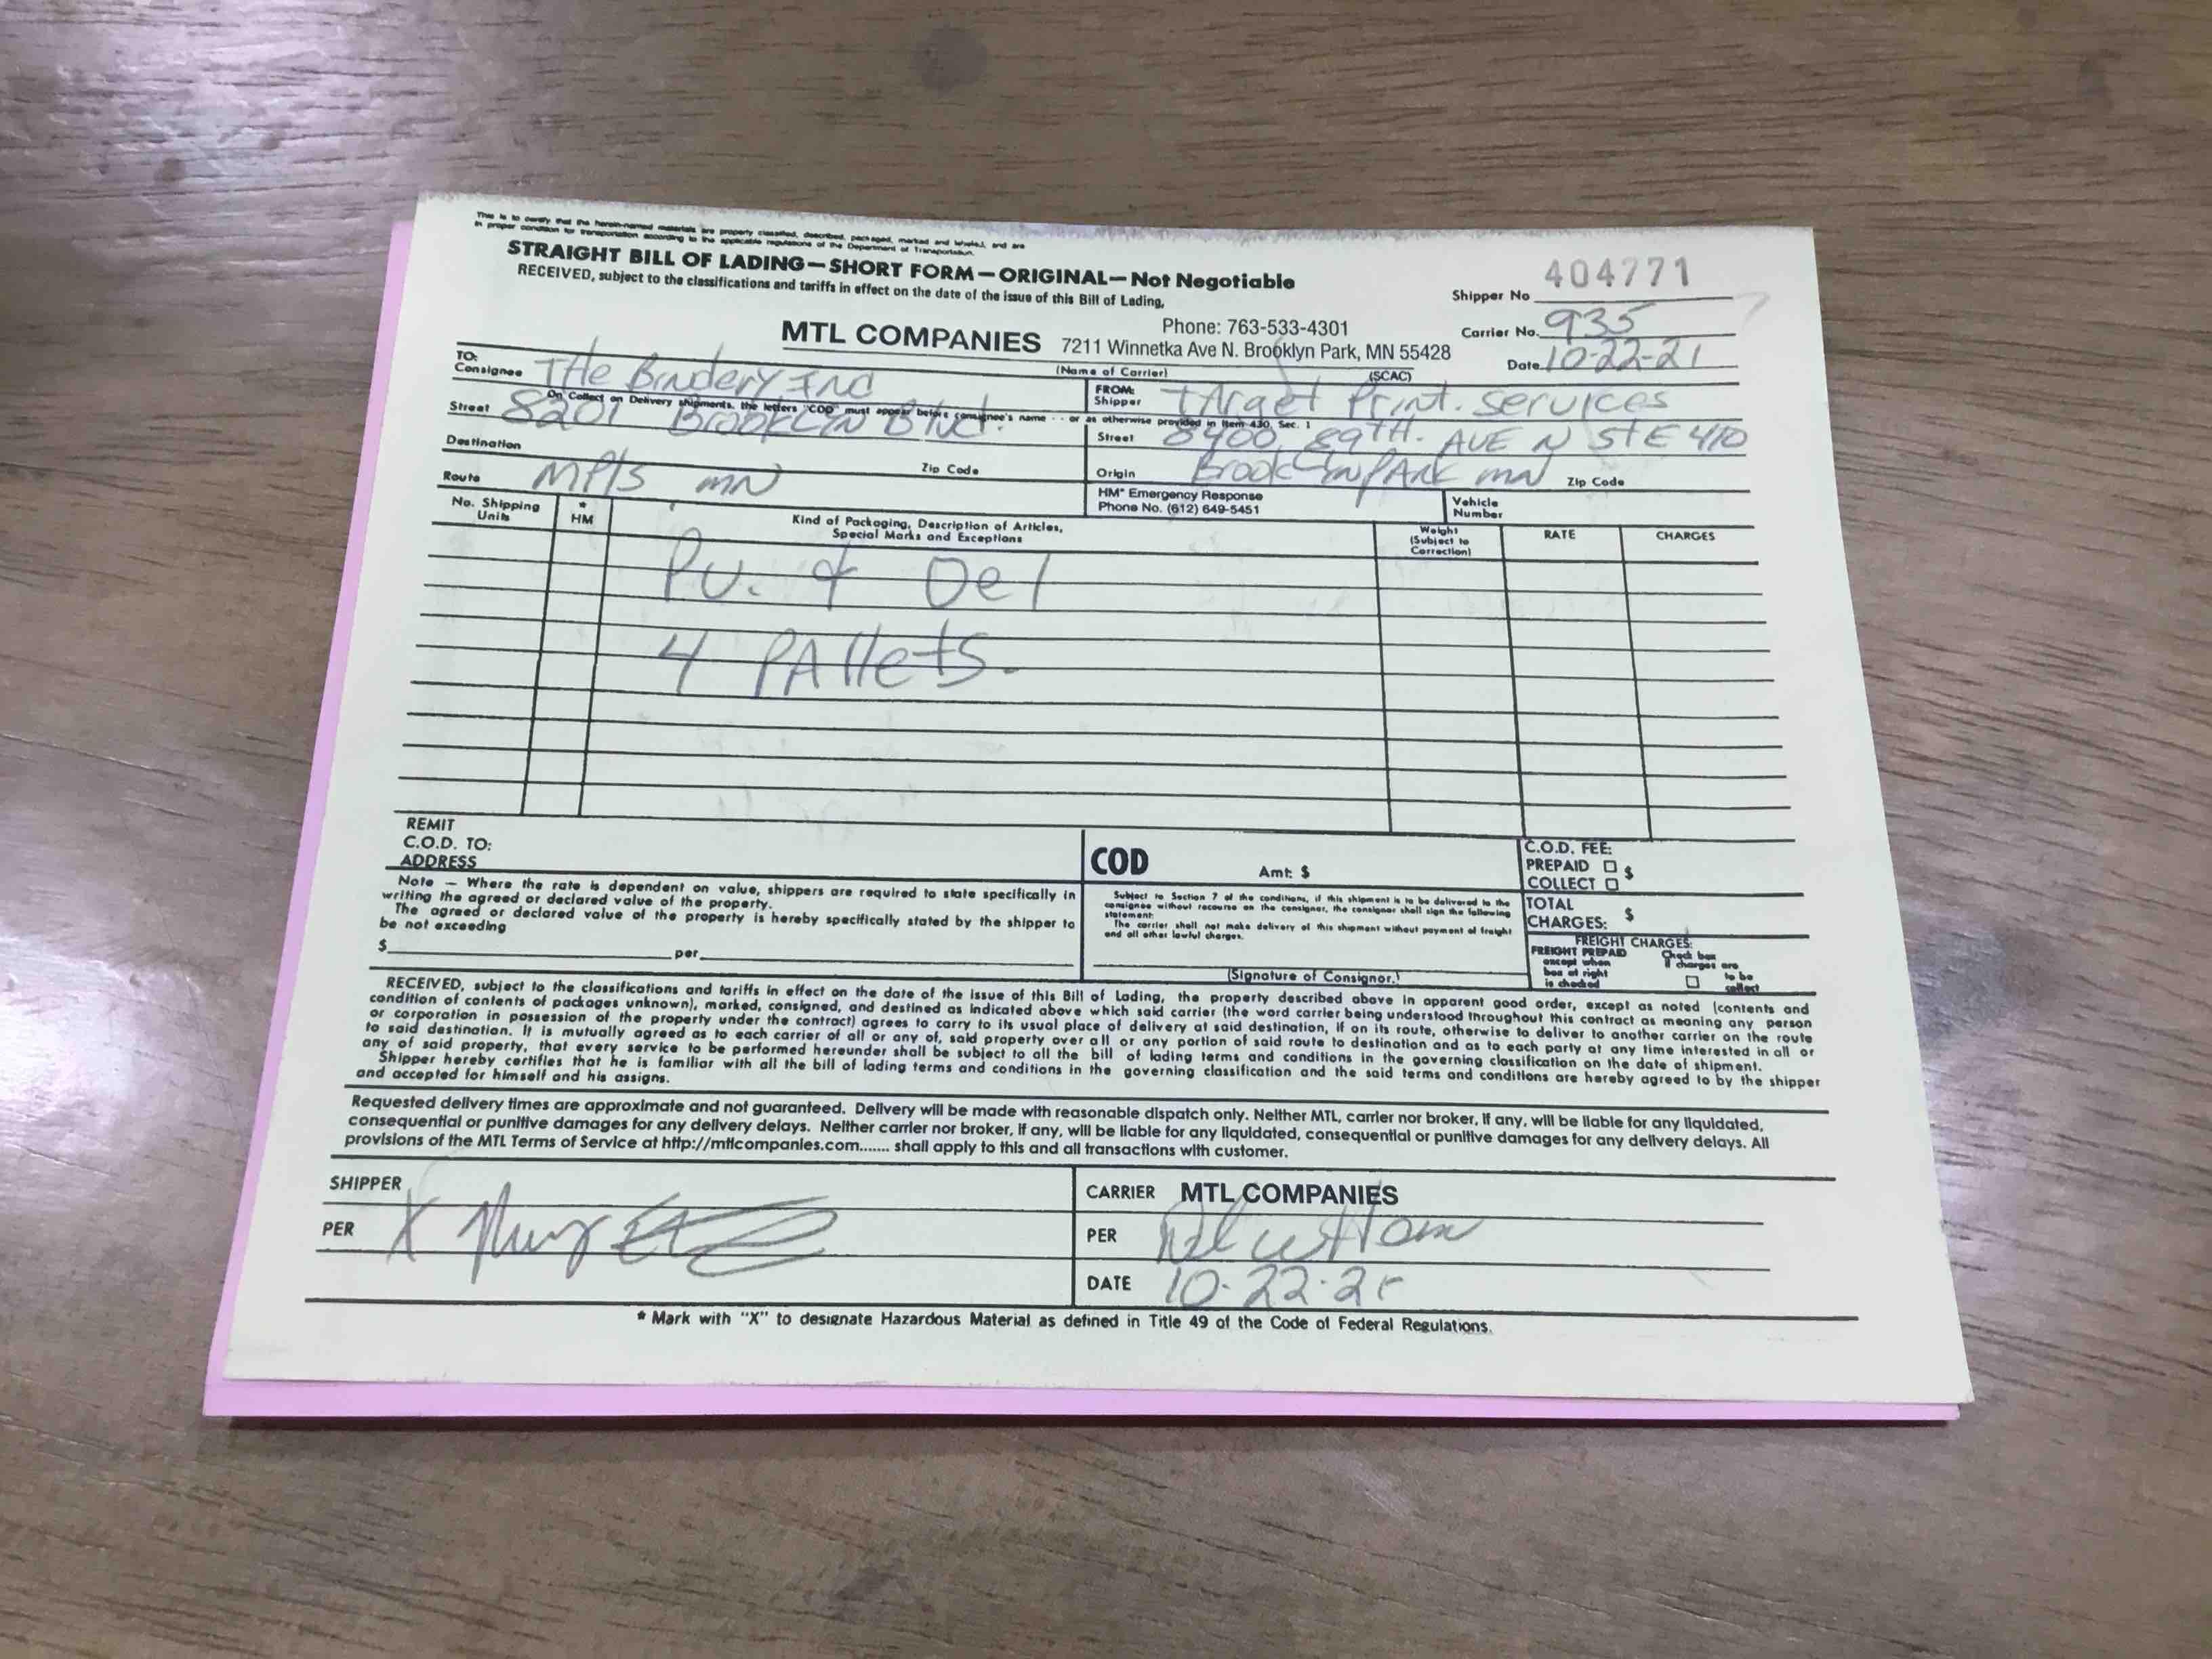 This is to certify that the herein-named materials are properly classified, described, packaged, marked and labeled, and are
in proper condition for transportation according to the applicable regulations of the Department of Transportation.
STRAIGHT BILL OF LADING—SHORT FORM—ORIGINAL—Not Negotiable
RECEIVED, subject to the classifications and tariffs in effect on the date of the issue of this Bill of Lading,
Shipper No 404771
Carrier No. 935
Date 10-22-21
MTL COMPANIES
Phone: 763-533-4301
7211 Winnetka Ave N. Brooklyn Park, MN 55428
(Name of Carrier) (SCAC)
TO:
Consignee THe BindERY INC
On Collect on Delivery shipments, the letters "COD" must appear before consignee's name - - or as otherwise provided in Item 430, Sec. 1
Street 8201 BrookLYN Blvd.
Destination
Zip Code
Route MPls MN
FROM:
Shipper TArget Print. Services
Street 8400 89TH. AVE N STE 410
Origin BrookLYN PARK MN Zip Code
HM* Emergency Response
Phone No. (612) 649-5451
Vehicle
Number
No. Shipping
Units
*
HM
Kind of Packaging, Description of Articles,
Special Marks and Exceptions
Weight
(Subject to
Correction)
RATE
CHARGES
PU. & Del
4 PAllets.
REMIT
C.O.D. TO:
ADDRESS
COD Amt: $
C.O.D. FEE:
PREPAID $
COLLECT
Note — Where the rate is dependent on value, shippers are required to state specifically in
writing the agreed or declared value of the property.
The agreed or declared value of the property is hereby specifically stated by the shipper to
be not exceeding
$ per
Subject to Section 7 of the conditions, if this shipment is to be delivered to the
consignee without recourse on the consignor, the consignor shall sign the following
statement:
The carrier shall not make delivery of this shipment without payment of freight
and all other lawful charges.
(Signature of Consignor.)
TOTAL
CHARGES: $
FREIGHT CHARGES:
FREIGHT PREPAID
except when
box at right
is checked
Check box
if charges are
to be
collect
RECEIVED, subject to the classifications and tariffs in effect on the date of the issue of this Bill of Lading, the property described above in apparent good order, except as noted (contents and
condition of contents of packages unknown), marked, consigned, and destined as indicated above which said carrier (the word carrier being understood throughout this contract as meaning any person
or corporation in possession of the property under the contract) agrees to carry to its usual place of delivery at said destination, if on its route, otherwise to deliver to another carrier on the route
to said destination. It is mutually agreed as to each carrier of all or any of, said property over all or any portion of said route to destination and as to each party at any time interested in all or
any of said property, that every service to be performed hereunder shall be subject to all the bill of lading terms and conditions in the governing classification on the date of shipment.
Shipper hereby certifies that he is familiar with all the bill of lading terms and conditions in the governing classification and the said terms and conditions are hereby agreed to by the shipper
and accepted for himself and his assigns.
Requested delivery times are approximate and not guaranteed. Delivery will be made with reasonable dispatch only. Neither MTL, carrier nor broker, if any, will be liable for any liquidated,
consequential or punitive damages for any delivery delays. Neither carrier nor broker, if any, will be liable for any liquidated, consequential or punitive damages for any delivery delays. All
provisions of the MTL Terms of Service at http://mtlcompanies.com....... shall apply to this and all transactions with customer.
SHIPPER
PER X
CARRIER MTL COMPANIES
PER
DATE 10-22-21
* Mark with "X" to designate Hazardous Material as defined in Title 49 of the Code of Federal Regulations.